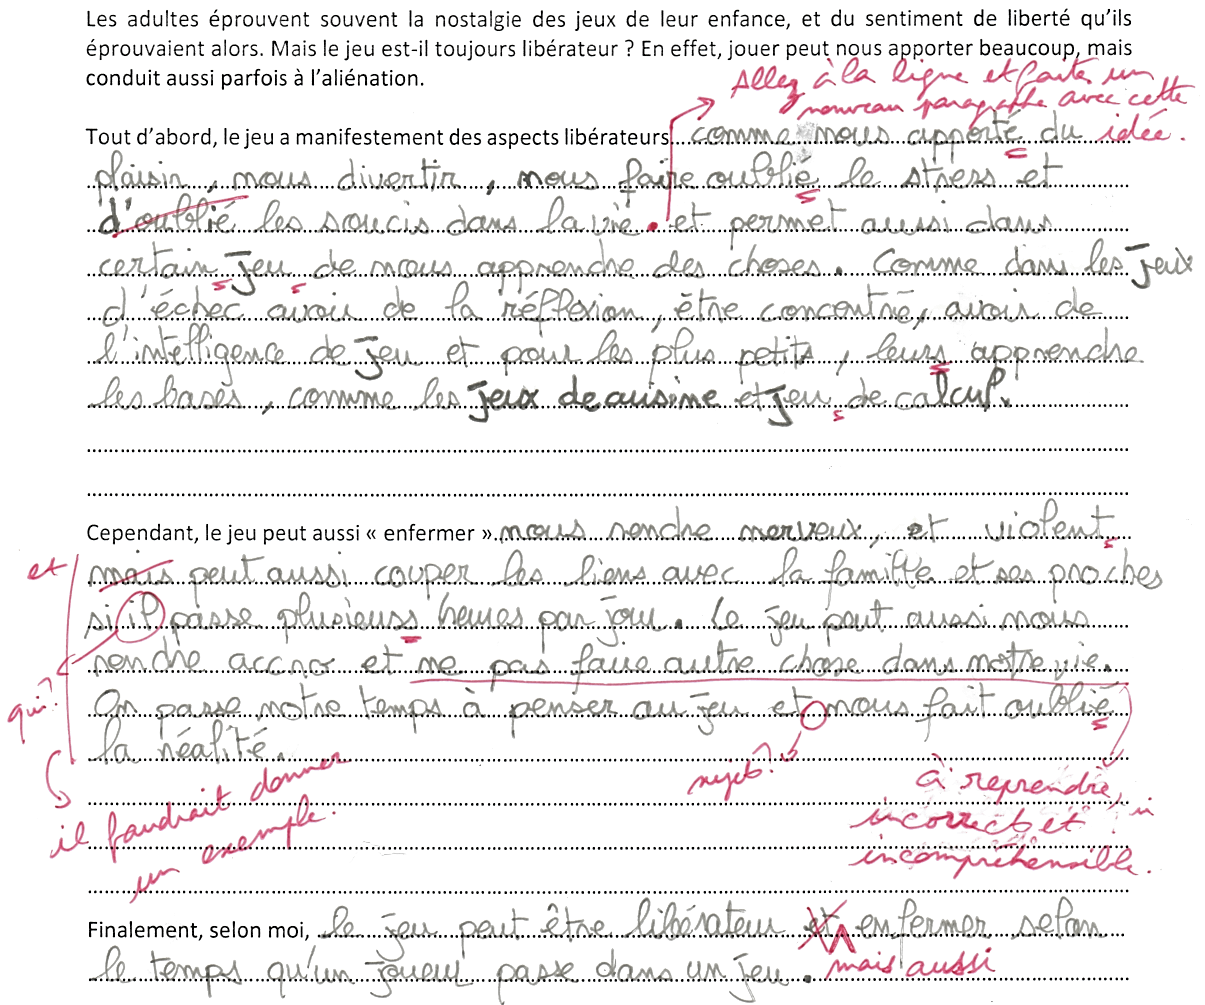 Les adultes éprouvent souvent la nostalgie des jeux de leur enfance, et du sentiment de liberté qu'ils
éprouvaient alors. Mais le jeu est-il toujours libérateur ? En effet, jouer peut nous apporter beaucoup, mais
conduit aussi parfois à l'aliénation.
Allez à la ligne et faite un
nouveau paragraphe avec cette
idée.
Tout d'abord, le jeu a manifestement des aspects libérateurs comme nous apporté du
plaisir, nous divertir, nous faire oublié le stress et
d'oublié les soucis dans la vie. et permet aussi dans
certain jeu de nous apprendre des choses. Comme dans les jeux
d'échec avoir de la réfflexion, être concentré, avoir de
l'intelligence de jeu et pour les plus petits, leurs apprendre
les bases, comme les jeux de cuisine et jeu de calcul.
s
Cependant, le jeu peut aussi « enfermer » nous rendre nerveux, et violent
s
et
mais peut aussi couper les liens avec la famille et ses proches
si il passe plusieurs heures par jour. Le jeu peut aussi nous
rendre accro et ne pas faire autre chose dans notre vie.
qui?
On passe notre temps à penser au jeu et nous fait oublié
la réalité.
sujet?
il faudrait donner
un exemple.
à reprendre,
incorrect et
incompréhensible.
Finalement, selon moi, le jeu peut être libérateur et enfermer selon
le temps qu'un joueur passe dans un jeu. mais aussi